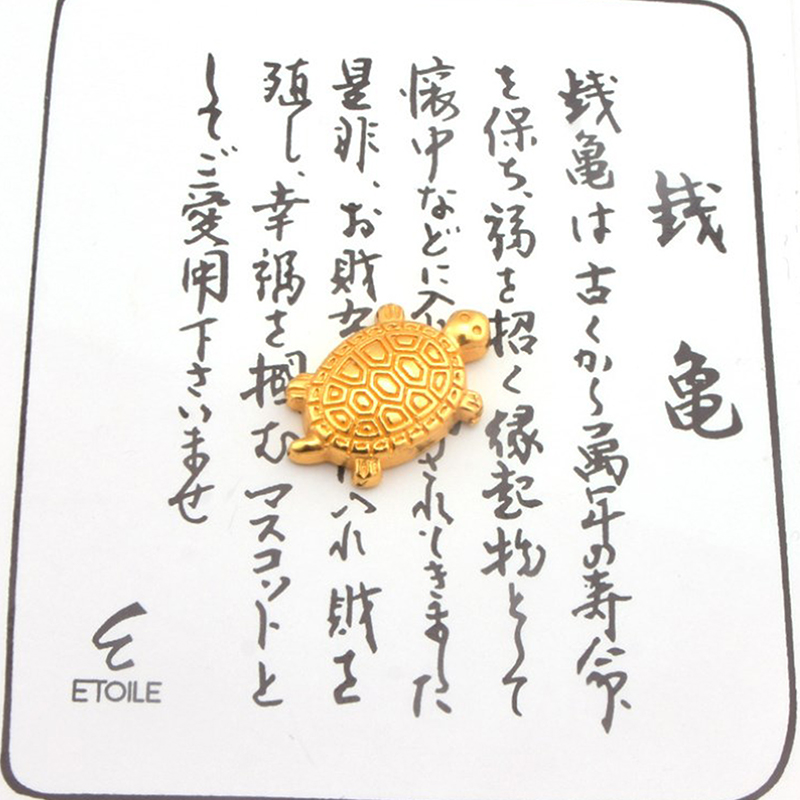 銭亀
銭亀は古くから萬年の寿命
を保ち、福を招く縁起物として
懐中などに されてきました
是非、お財 入れ財を
殖し、幸福を掴むマスコットと
してご愛用下さいませ
ETOILE